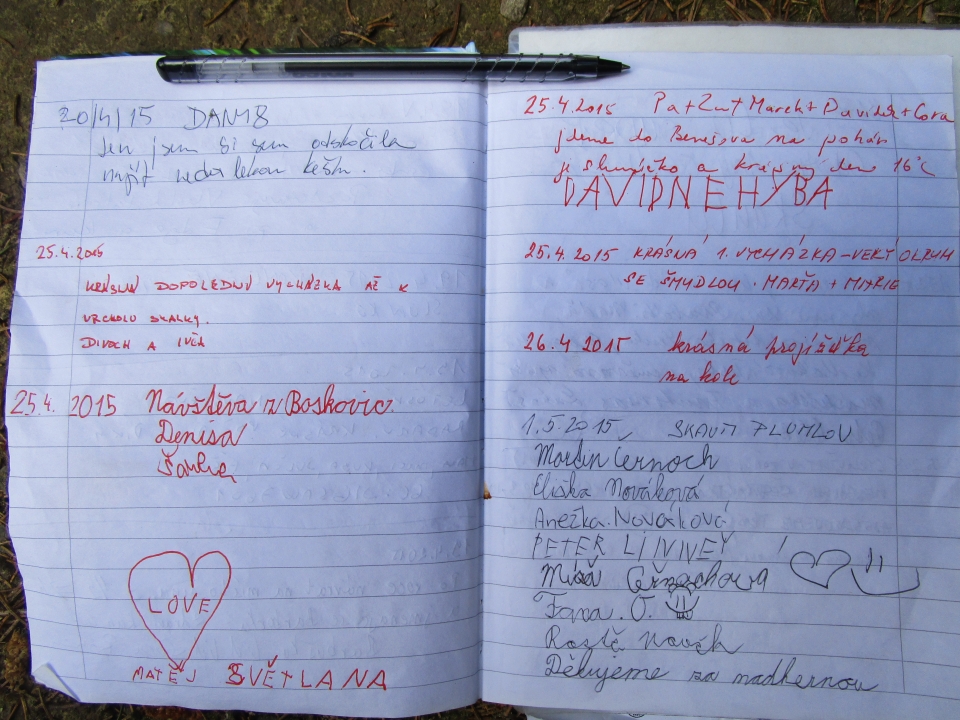 20/4/15 DAN18
Jen jsem si sem odskočila
najít nedalekou kešku.
25.4.2015
KRÁSNÁ DOPOLEDNÍ VYCHÁZKA AŽ K
VRCHOLU SKALKY.
DIVOCH A IVČA
25.4. 2015 Návštěva z Boskovic.
Denisa
Šárka
LOVE
MATĚJ SVĚTLANA
25.4.2015 Pa+Zu+Marek+Davídek+Cora
jdeme do Benešova na pohár
je sluníčko a krásný den 16°C
DAVIDNEHYBA
25.4.2015 KRÁSNÁ 1. VYCHÁZKA - OLRUH
SE ŠMUDLOU. MARŤA +
26.4 2015 krásná projížďka
na kole
1.5.2015, SKAUTI PLUMLOV
Martin Černoch
Eliška Nováková
Anežka.Nováková
PETER LINNEY
Míša Černochová
Fana. O.
Rostě Novák
Děkujeme za nadhernou